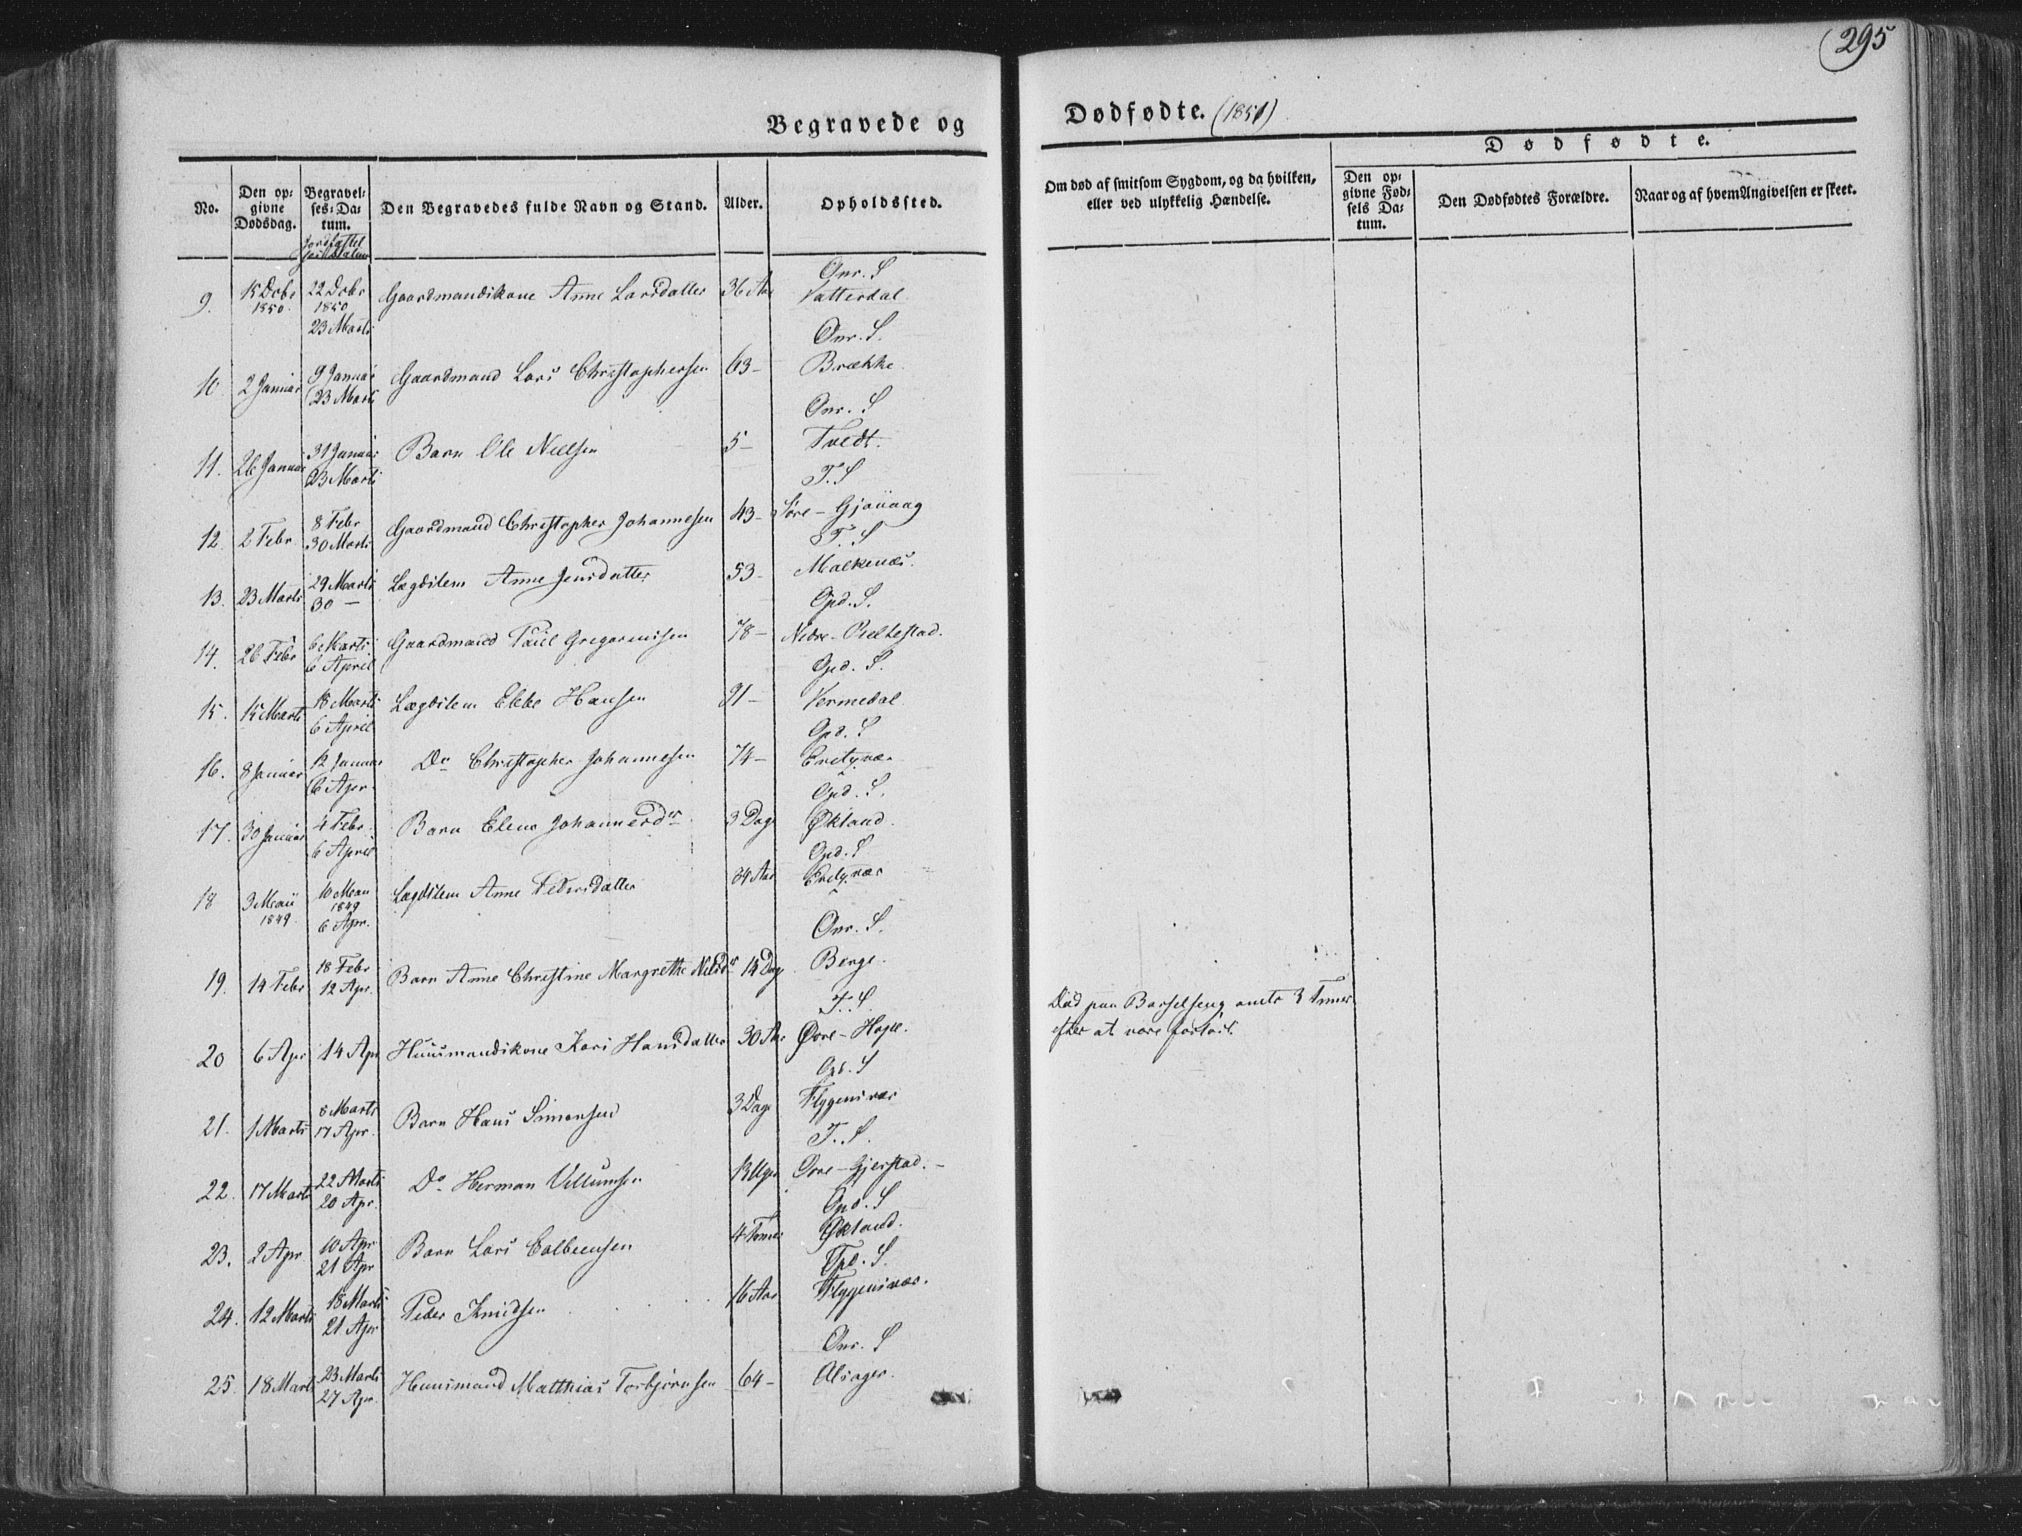 295
Begravede og
Dødfødte. (1851)
No.
Den op-
givne
Dødsdag.
Begravel-
ses-Da-
tum.
Den Begravedes fulde Navn og Stand.
Alder.
Opholdssted.
Om død af smitsom Sygdom, og da hvilken,
eller ved ulykkelig Hændelse.
Dødfødte.
Den op-
givne Fød-
sels Da-
tum.
Den Dødfødtes Forældre.
Naar og af hvem Angivelsen er skeet.
Onr. S
9. 15 Dcbr 1850. 22 Dcbr 1850 23 Marts Gaardmandskone Anne Larsdatter 36 Aar Vatterdal.
Onr. S.
10 2 Januar 9 Januar 23 Marts Gaardmand Lars Christophersen 63 - Brække.
Onr. S
11. 26 Januar 31 Januar 23 Marts Barn Ole Nielsen 5 - Tvedt.
T. S
12. 2 Febr. 8 Febr 30 Marts Gaardmand Christopher Johannesen 43 -
T. S
13. 23 Marts 29 Marts 30 - Lægdslem Anne Jensdatter 53 - Malkenæs.
Opd. S.
14. 26 Febr 6 Marts 6 April Gaardmand Poul Gregoriussen 78 - Nedre-
Opd. S.
15. 15 Marts 18 Marts 6 April Lægdslem Ebbe Hansen 91 - Vermedal
Opd. S
16. 8 Januar 12 Januar 6 Apr. Do Christopher Johannesen 74 -
Opd. S.
17. 30 Januar 4 Febr. 6 April Barn Elene Johannesdr 3 Dage Økland.
Opd. S
18 3 Maii 1849. 10 Maii 1849 6 Apr. Lægdslem Anne Pedersdatter 34 Aar
Onr. S.
19. 14 Febr 18 Febr 12 Apr. Barn Anne Christine Margrethe Nilsdr 14 Dage Berge.
T. S
20 6 Apr 14 Apr Huusmandskone Kari Hansdatter 30 Aar Øvre-Hope. Død paa Barselseng 3 Timer
efter at være forløst.
Opd. S
21. 1 Marts 8 Marts 17 Apr. Barn Hans Simonsen 3 Dage Flygensvær
T. S.
22. 17 Marts 22 Marts 20 Apr. Do Herman Villumsen Uger Øvre-Gjerstad.
Opd. S
23. 2 Apr 10 Apr 21 Apr Barn Lars Colbeensen 4 Timer Økland.
Opd. S.
24. 12 Marts 18 Marts 21 Apr Peder Knudsen 16 Aar Flygensvær.
Onr. S
25. 18 Marts 23 Marts 27 Apr. Huusmand Matthias Torbjørnsen 64 - Alsager.